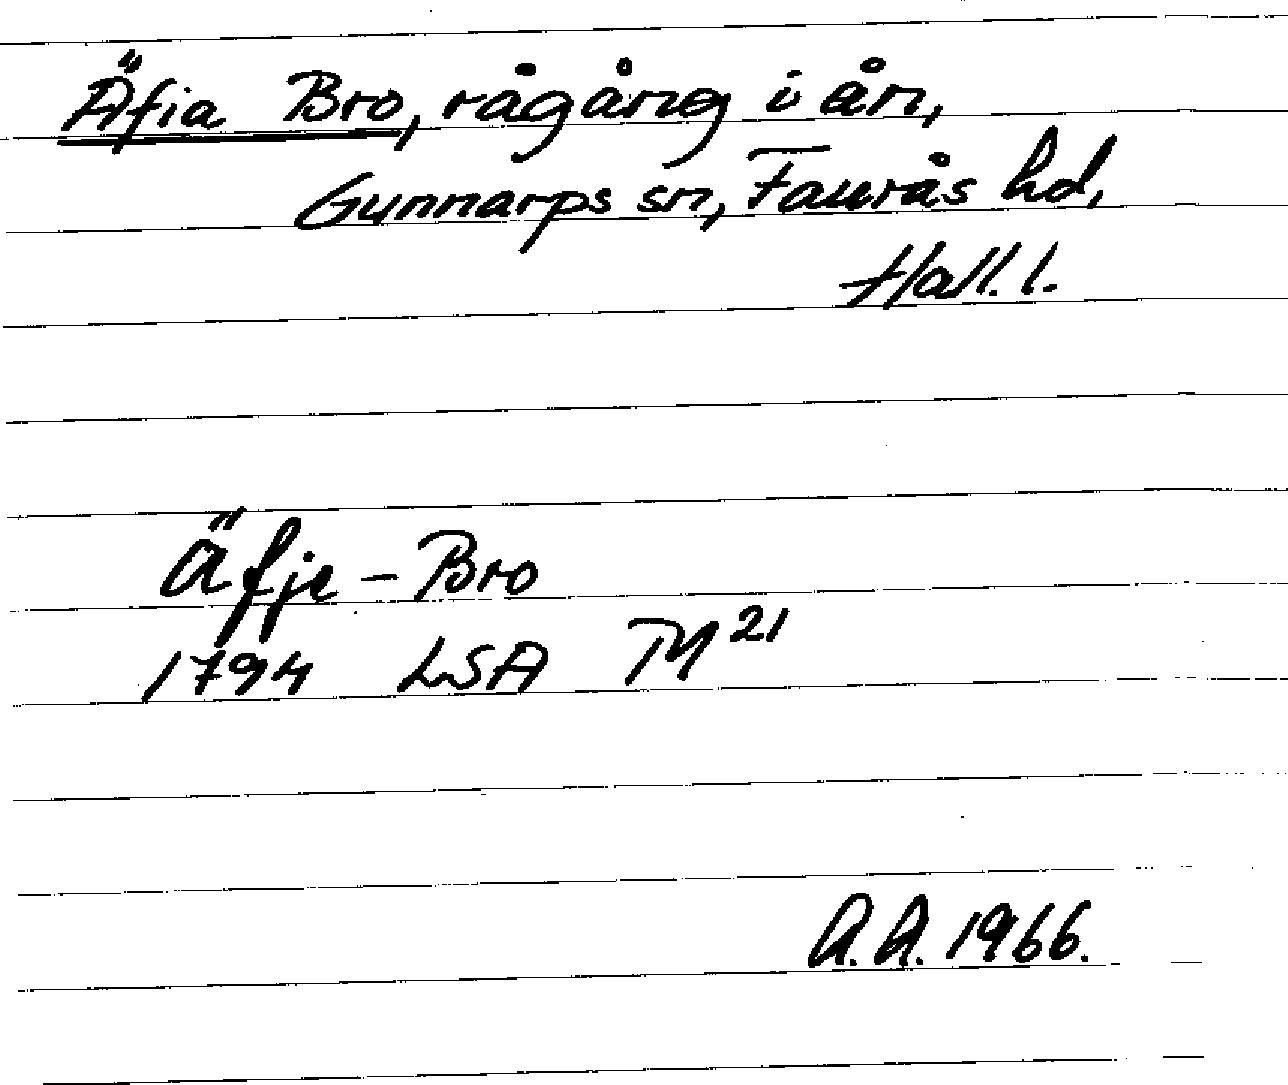 Äfia Bro, rågång i ån,
Gunnarps sn, Faurås hd,
Hall. l.
Äfje - Bro
1794 LSA M 21
A.A. 1966.